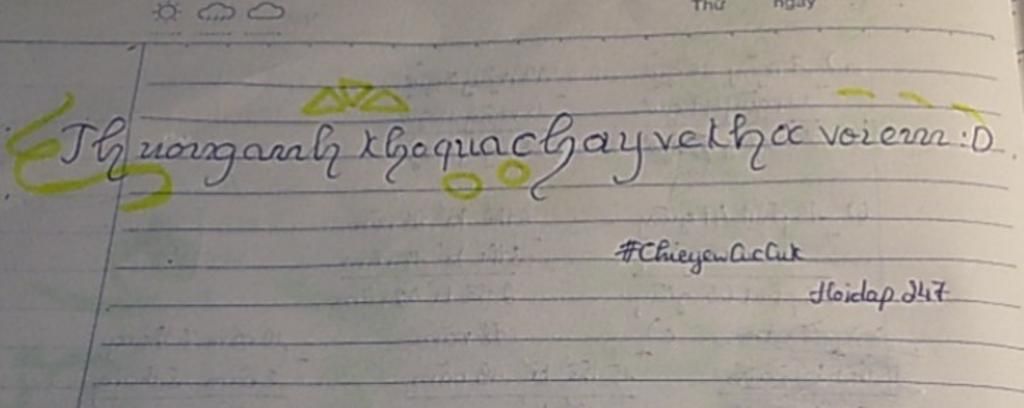 Thứ ngày
Thuongannh khoquachayvekhoc voiemm :D
#ChieyewCucCuk
Hoidap247